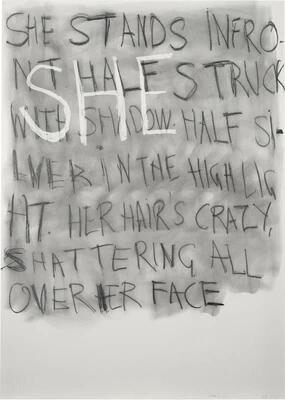 SHE STANDS INFRO-
NT HALF STRUCK
SHE
WITH SHADOW. HALF SI-
LVER IN THE HIGH LIG
HT. HER HAIR'S CRAZY,
SHATTERING ALL
OVER HER FACE